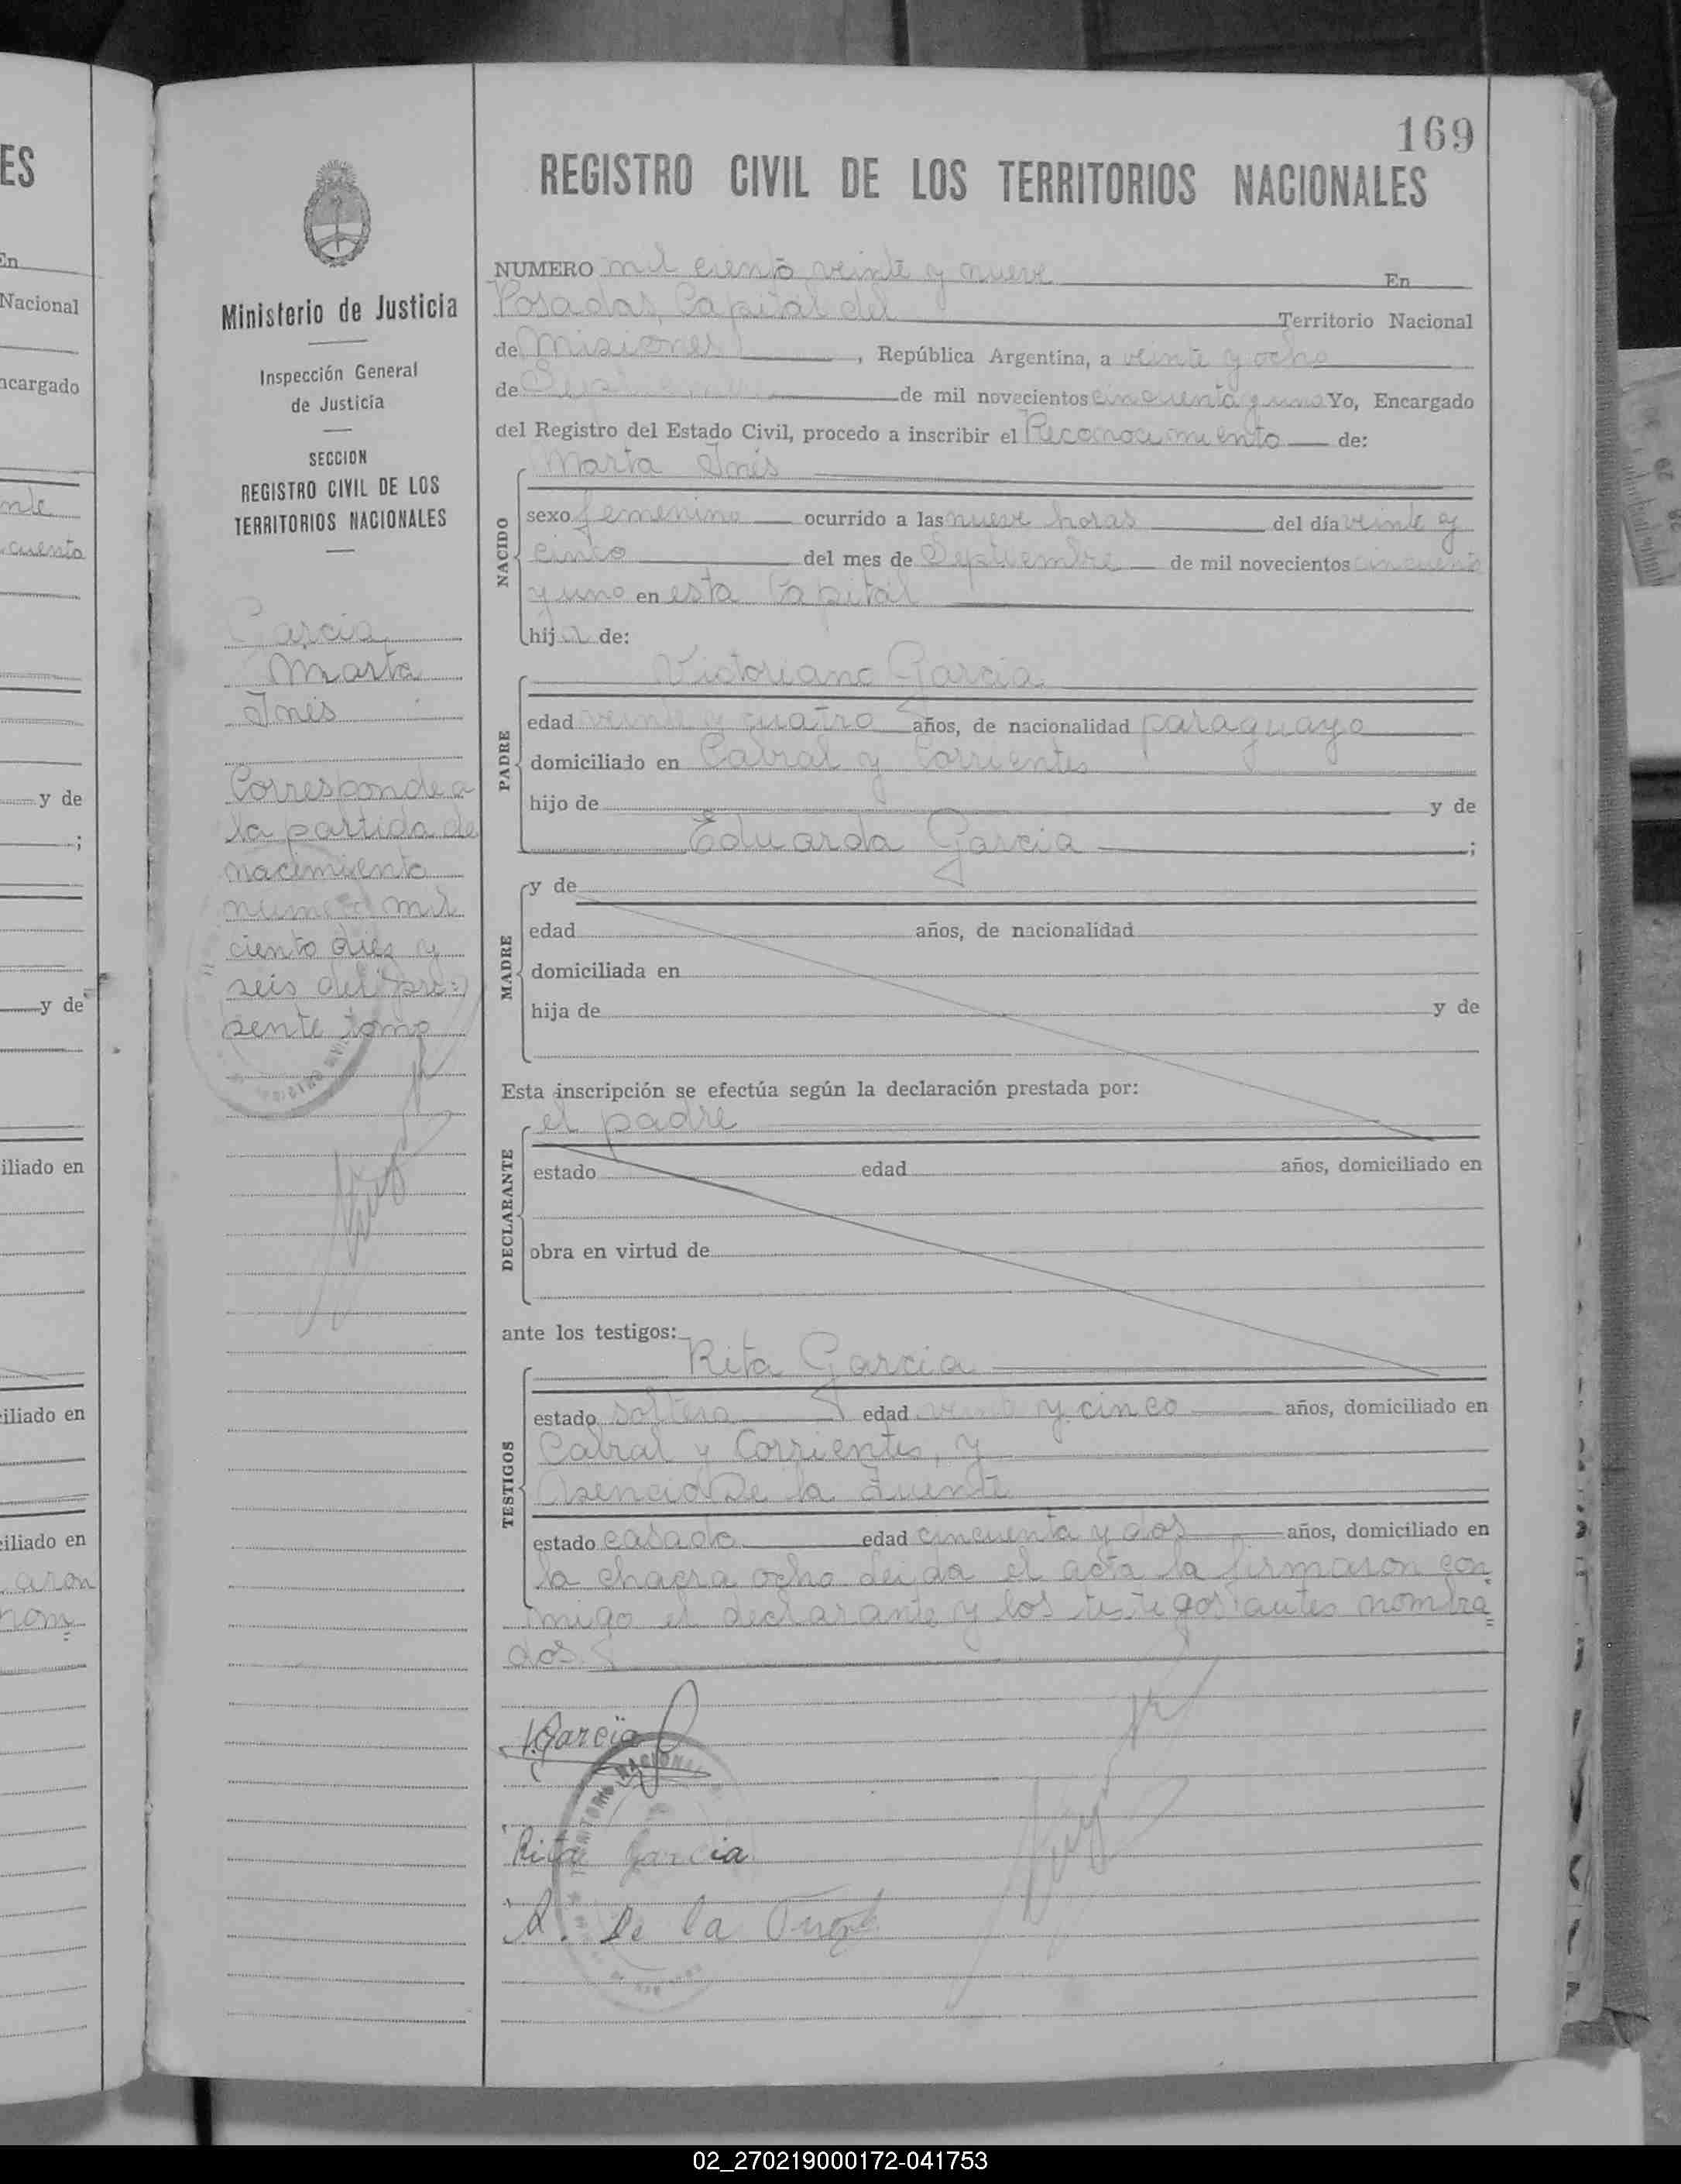 169
REGISTRO CIVIL DE LOS TERRITORIOS NACIONALES
NUMERO mil ciento veinte y nueve En
Posadas, Capital del Territorio Nacional
de Misiones, República Argentina, a veinte y ocho
de Septiembre de mil novecientos cincuenta y uno Yo, Encargado
del Registro del Estado Civil, procedo a inscribir el Reconocimiento de:
NACIDO
Marta Inés
sexo femenino ocurrido a las nueve horas del día veinte y
cinco del mes de Septiembre de mil novecientos cincuenta
y uno en esta Capital
hija de:
PADRE
Victoriano Garcia
edad veinte y cuatro años, de nacionalidad paraguayo
domiciliado en Cabral y Corrientes
hijo de y de
Eduarda Garcia ;
MADRE
y de
edad años, de nacionalidad
domiciliada en
hija de y de
Esta inscripción se efectúa según la declaración prestada por:
DECLARANTE
el padre
estado edad años, domiciliado en
obra en virtud de
ante los testigos:
TESTIGOS
Rita Garcia
estado soltera edad veinte y cinco años, domiciliado en
Cabral y Corrientes, y
Asencio De la Fuente
estado casado edad cincuenta y dos años, domiciliado en
la chacra ocho leida el acta la firmaron con
migo el declarante y los testigos antes nombra=
dos
V Garcia
Rita Garcia
A. De la Fuente
Ministerio de Justicia
Inspección General
de Justicia
SECCION
REGISTRO CIVIL DE LOS
TERRITORIOS NACIONALES
Garcia
Marta
Inés
Corresponde a
la partida de
nacimiento
numero mil
ciento diez y
seis del pre=
sente tomo
ES
En
Nacional
ncargado
nte
cuenta
y de
;
y de
iliado en
iliado en
iliado en
aron
nom=
02_270219000172-041753